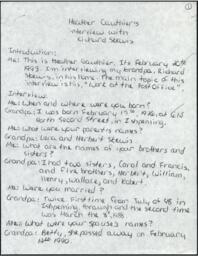 ①
Heather Gauthier's
interview with
Richard
Introduction:
Me: This is Heather Gauthier. It's February 20th
1993. I'm interviewing my Grandpa, Richard
in his home. The main topic of this
interview is his, "Work at the Post Office"
Interview:
Me: When and where were you born?
Grandpa: I was born February 1920, at
North Second Street, in Ishpeming.
Me: What were your parents names?
Grandpa: and Herbert
Me: What are the names of your brothers and
sisters?
Grandpa: I had two sisters, Carol and Francis,
and Five brothers, Herbert, William,
Henry, Wallace, and Robert.
Me: Were you married?
Grandpa: Twice. First time from July of 48 in
Ishpeming, through and the second time
was March the
Me: What were your spouse's names?
Grandpa: Betty, she passed away on February
1990